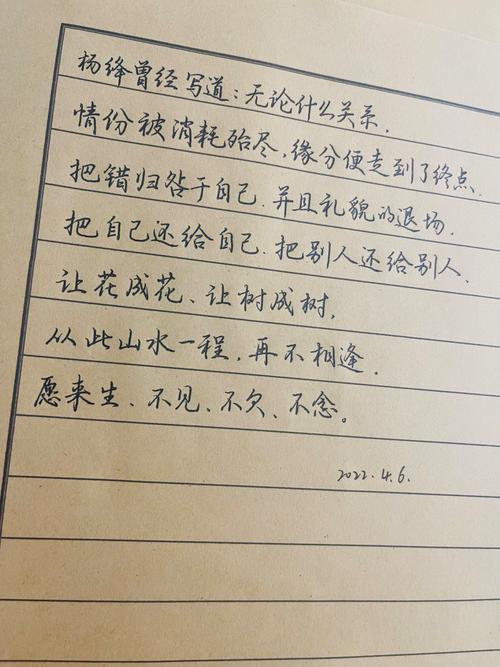 杨绛曾经写道：无论什么关系，
情份被消耗殆尽，缘分便走到了终点，
把错归咎于自己，并且礼貌的退场，
把自己还给自己，把别人还给别人，
让花成花、让树成树，
从此山水一程，再不相逢，
愿来生、不见、不欠、不念。
2022.4.6.